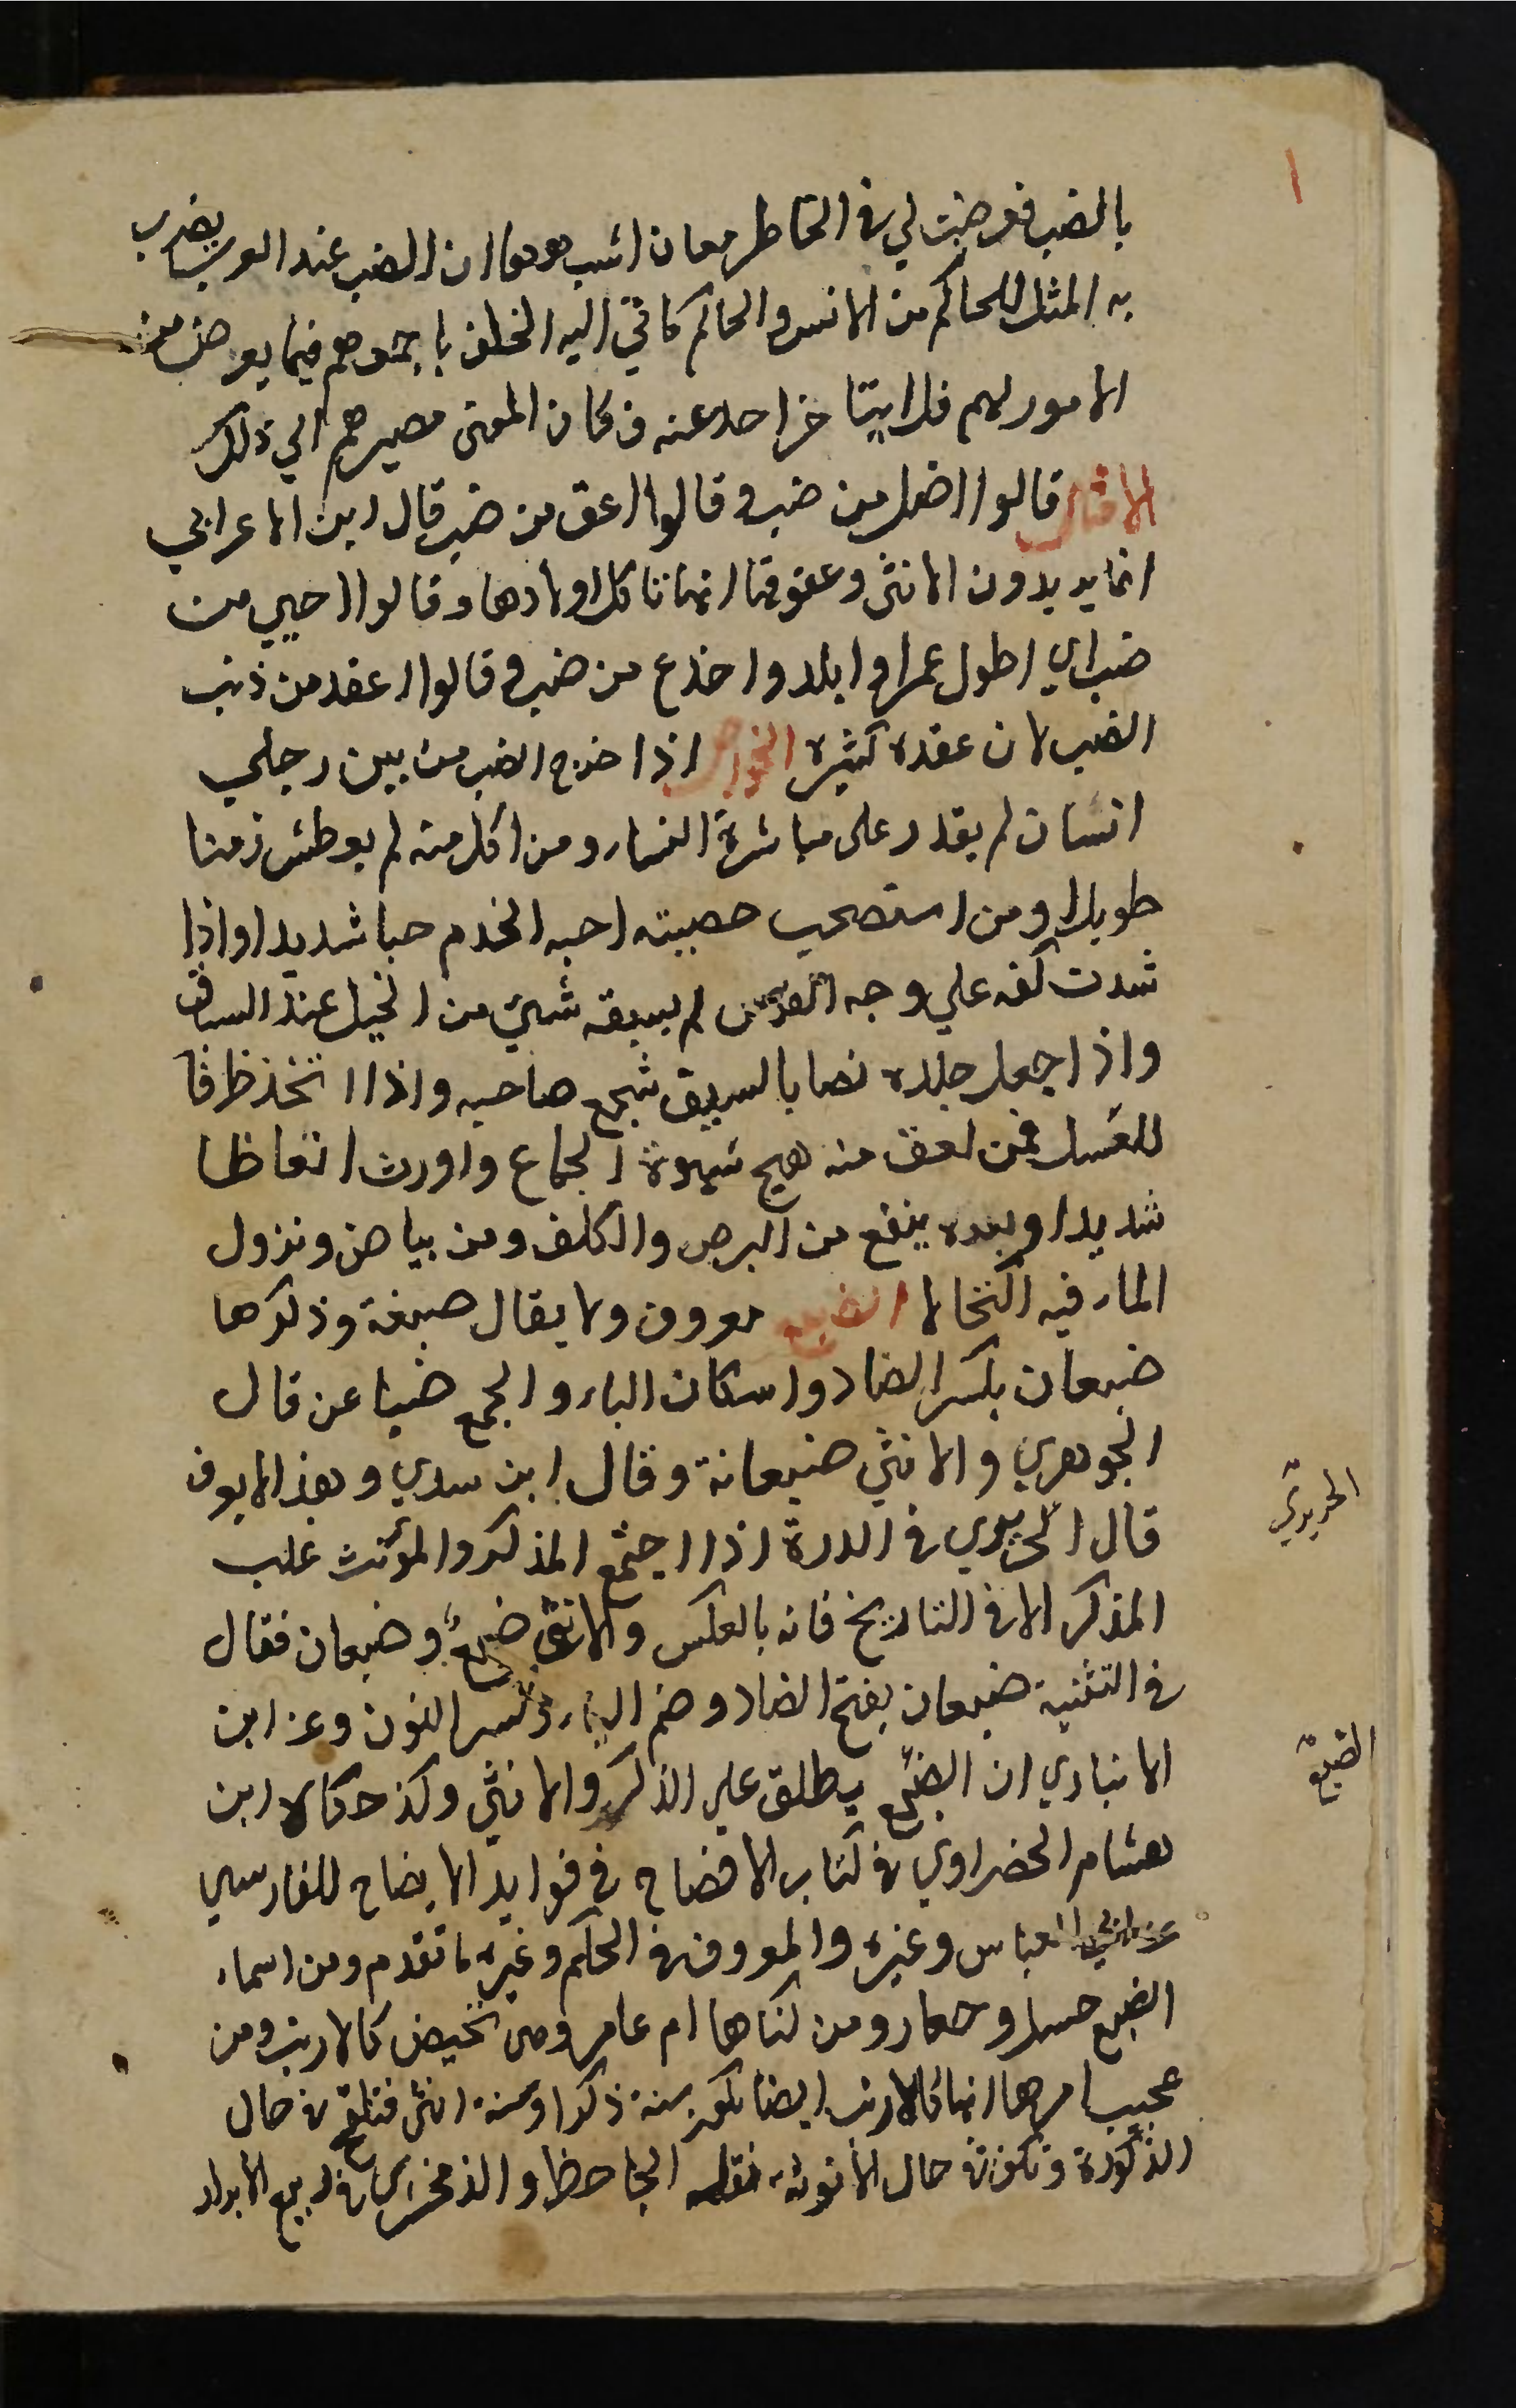 ١
بالضب فعرضت لي في الخاطر معان اشبهها ان الضب عند العرب يضرب
به المثل للحاكم من الانس والحاكم كافي اليه الخلق باجمعهم فيما يعرض من
الامور لهم فلا ابيتا خرا حد عنه فكان المعنى مصيرهم الي ذلك
الامثال قالوا اضل من ضب وقالوا اعق من ضب قال ابن الاعرابي
انما يريدون الانثى وعقوقها انها تاكل اولادها وقالوا احيي من
ضب اي اطول عمرا وابلد واخدع من ضب وقالوا اعقد من ذنب
الضب لان عقده كثيرة الخواص اذا خرج الضب من بين رجلي
انسان لم يقدر على مباشرة النساء ومن اكل منه لم يعطش زمنا
طويلا ومن استصحب خصيته احبه الخدم حبا شديدا واذا
شدت كفه علي وجه الفرس لم يسبقه شيء من الخيل عند السباق
واذا جعل جلده نصابا لسيف شجع صاحبه واذا اتخذ ظرفا
للعسل فمن لعق منه هيج شهوة الجماع واورث انعاظا
شديدا وبعره ينفع من البرص والكلف ومن بياض ونزول
الماء فيه اكتحالا الضبع معروف ولا يقال ضبعة وذكرها
ضبعان بكسر الضاد واسكان الباء والجمع ضباعن قال
الجوهري والانثي ضبعانة وقال ابن سدي وهذا لا يعرف
قال الحريري في الدرة اذا اجتمع المذكر والمؤنث غلب
المذكر الا في التاريخ فانه بالعكس والانثى ضبع وضبعان فقال
في التثنية ضبعان بفتح الضاد وضم الباء وكسر النون وعن ابن
الانباري ان الضبع يطلق علي الذكر والانثي وكذ حكاه ابن
هشام الخضراوي في كتاب الافصاح في فوايد الايضاح للفارسي
عن ابي العباس وغيره والمعروف في المحكم وغيره ما تقدم ومن اسماء
الضبع حسل وجعار ومن كناها ام عامر وهي تحيض كالارنب ومن
عجيب امرها انها كالارنب ايضا تكون سنة ذكرا وسنة انثى فتلقح في حال
الذكورة وتكون في حال الانوثة نقله الجاحظ والزمخشري في ربيع الابرار
الحريري
الضبع